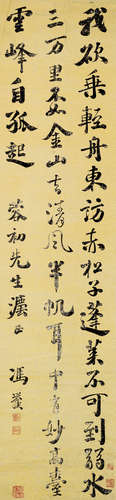 我欲乘輕舟東訪赤松子蓬萊不可到弱水
三万里不如金山去清風半帆耳中有妙高臺
雲峰自孤起
蓉初先生灋正
馮煦